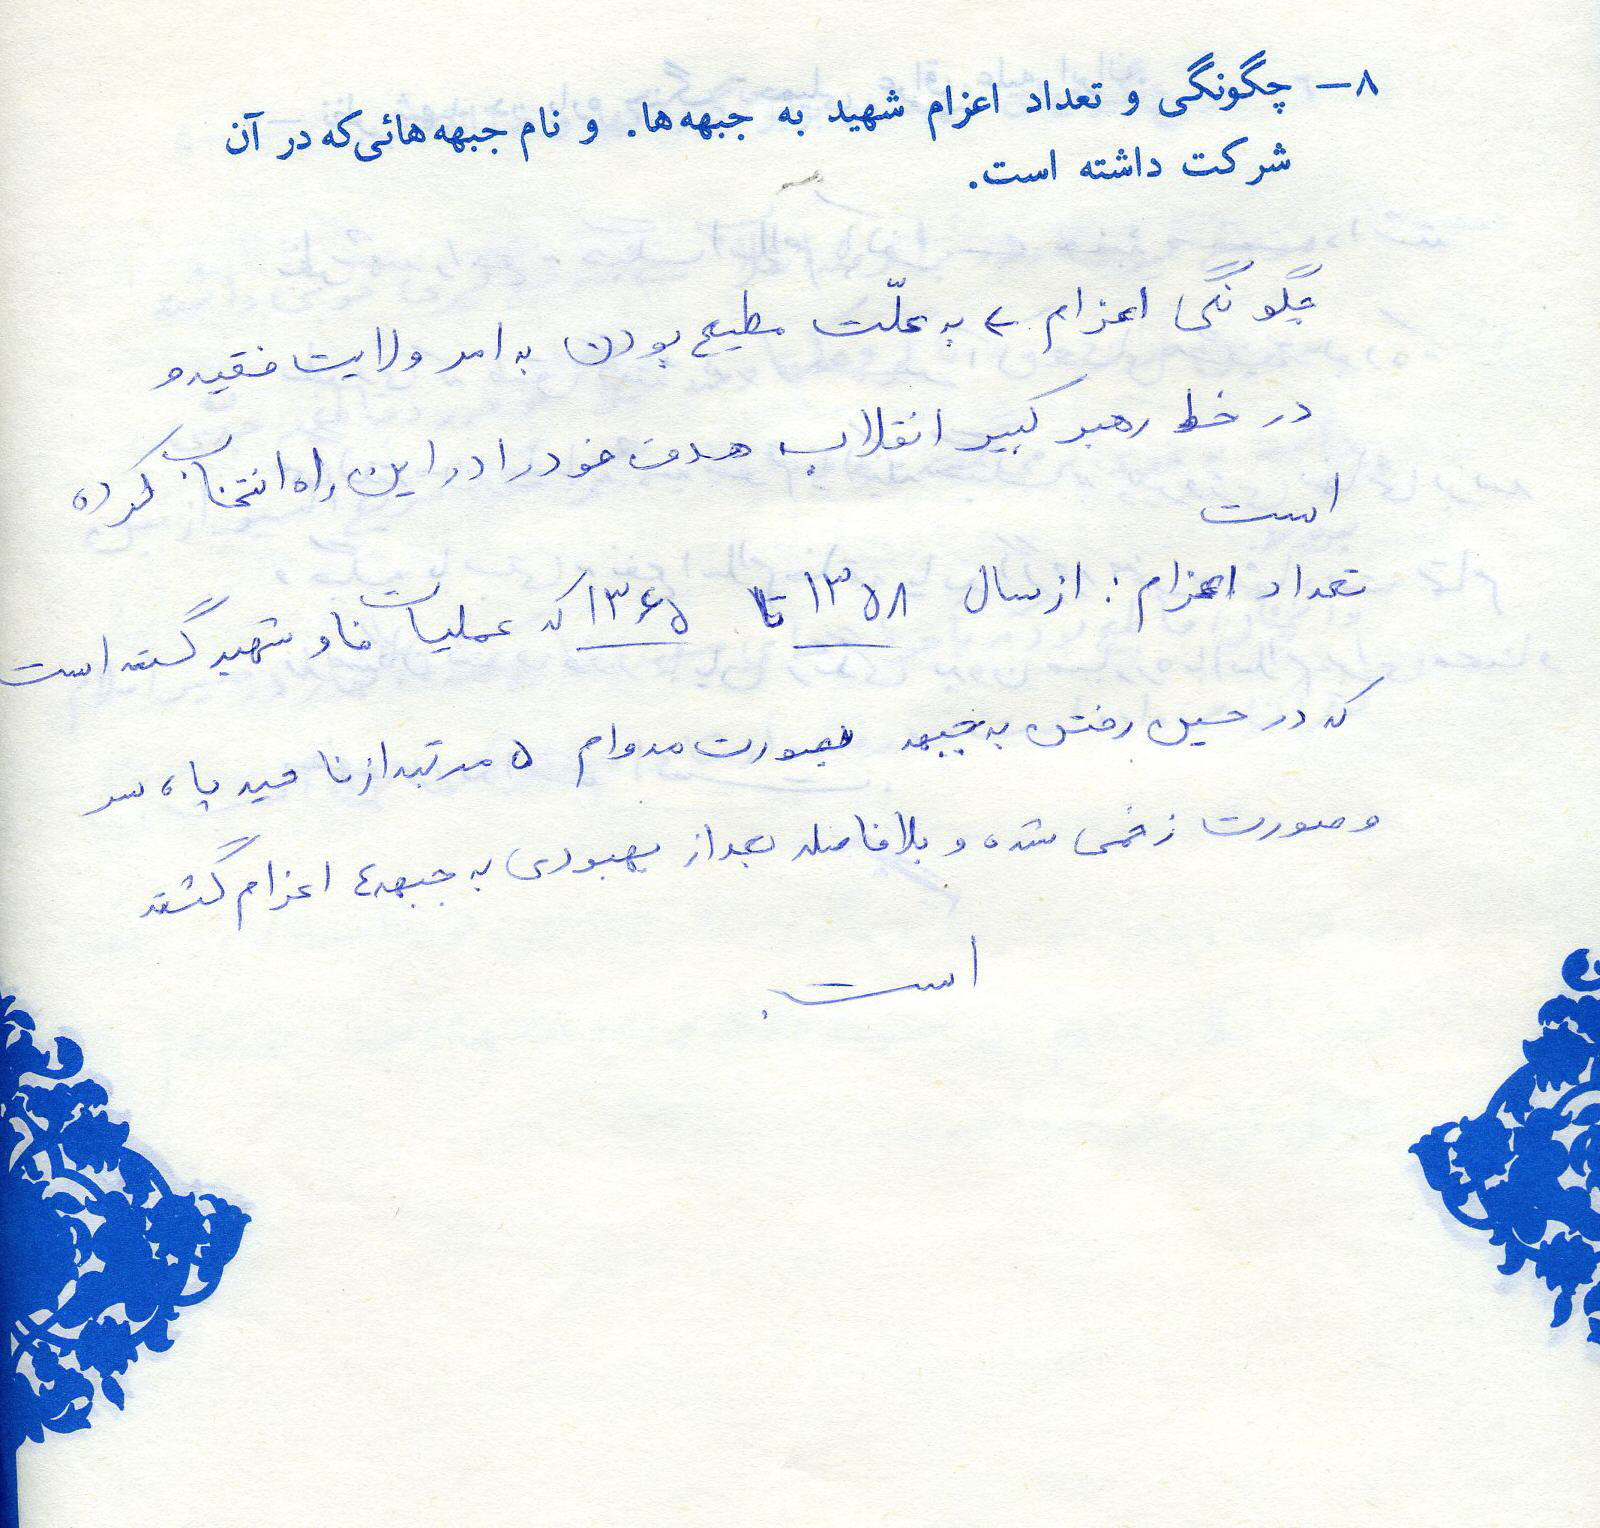 ۸– چگونگی و تعداد اعزام شهید به جبهه‌ها. و نام جبهه‌هائی که در آن
شرکت داشته است.
چگونگی اعزام ← به علّت مطیع بودن به امر ولایت فقیه و
در خط رهبر کبیر انقلاب هدف خود را در این راه انتخاب کرده
است
تعداد اعزام : از سال ۱۳۵۸ تا ۱۳۶۵ که عملیات فاو شهید گشته است
که در حین رفتن به جبهه بصورت مداوم ۵ مرتبه از ناحیه پا، سر
و صورت زخمی شده و بلافاصله بعد از بهبودی به جبهه اعزام گشته
است.